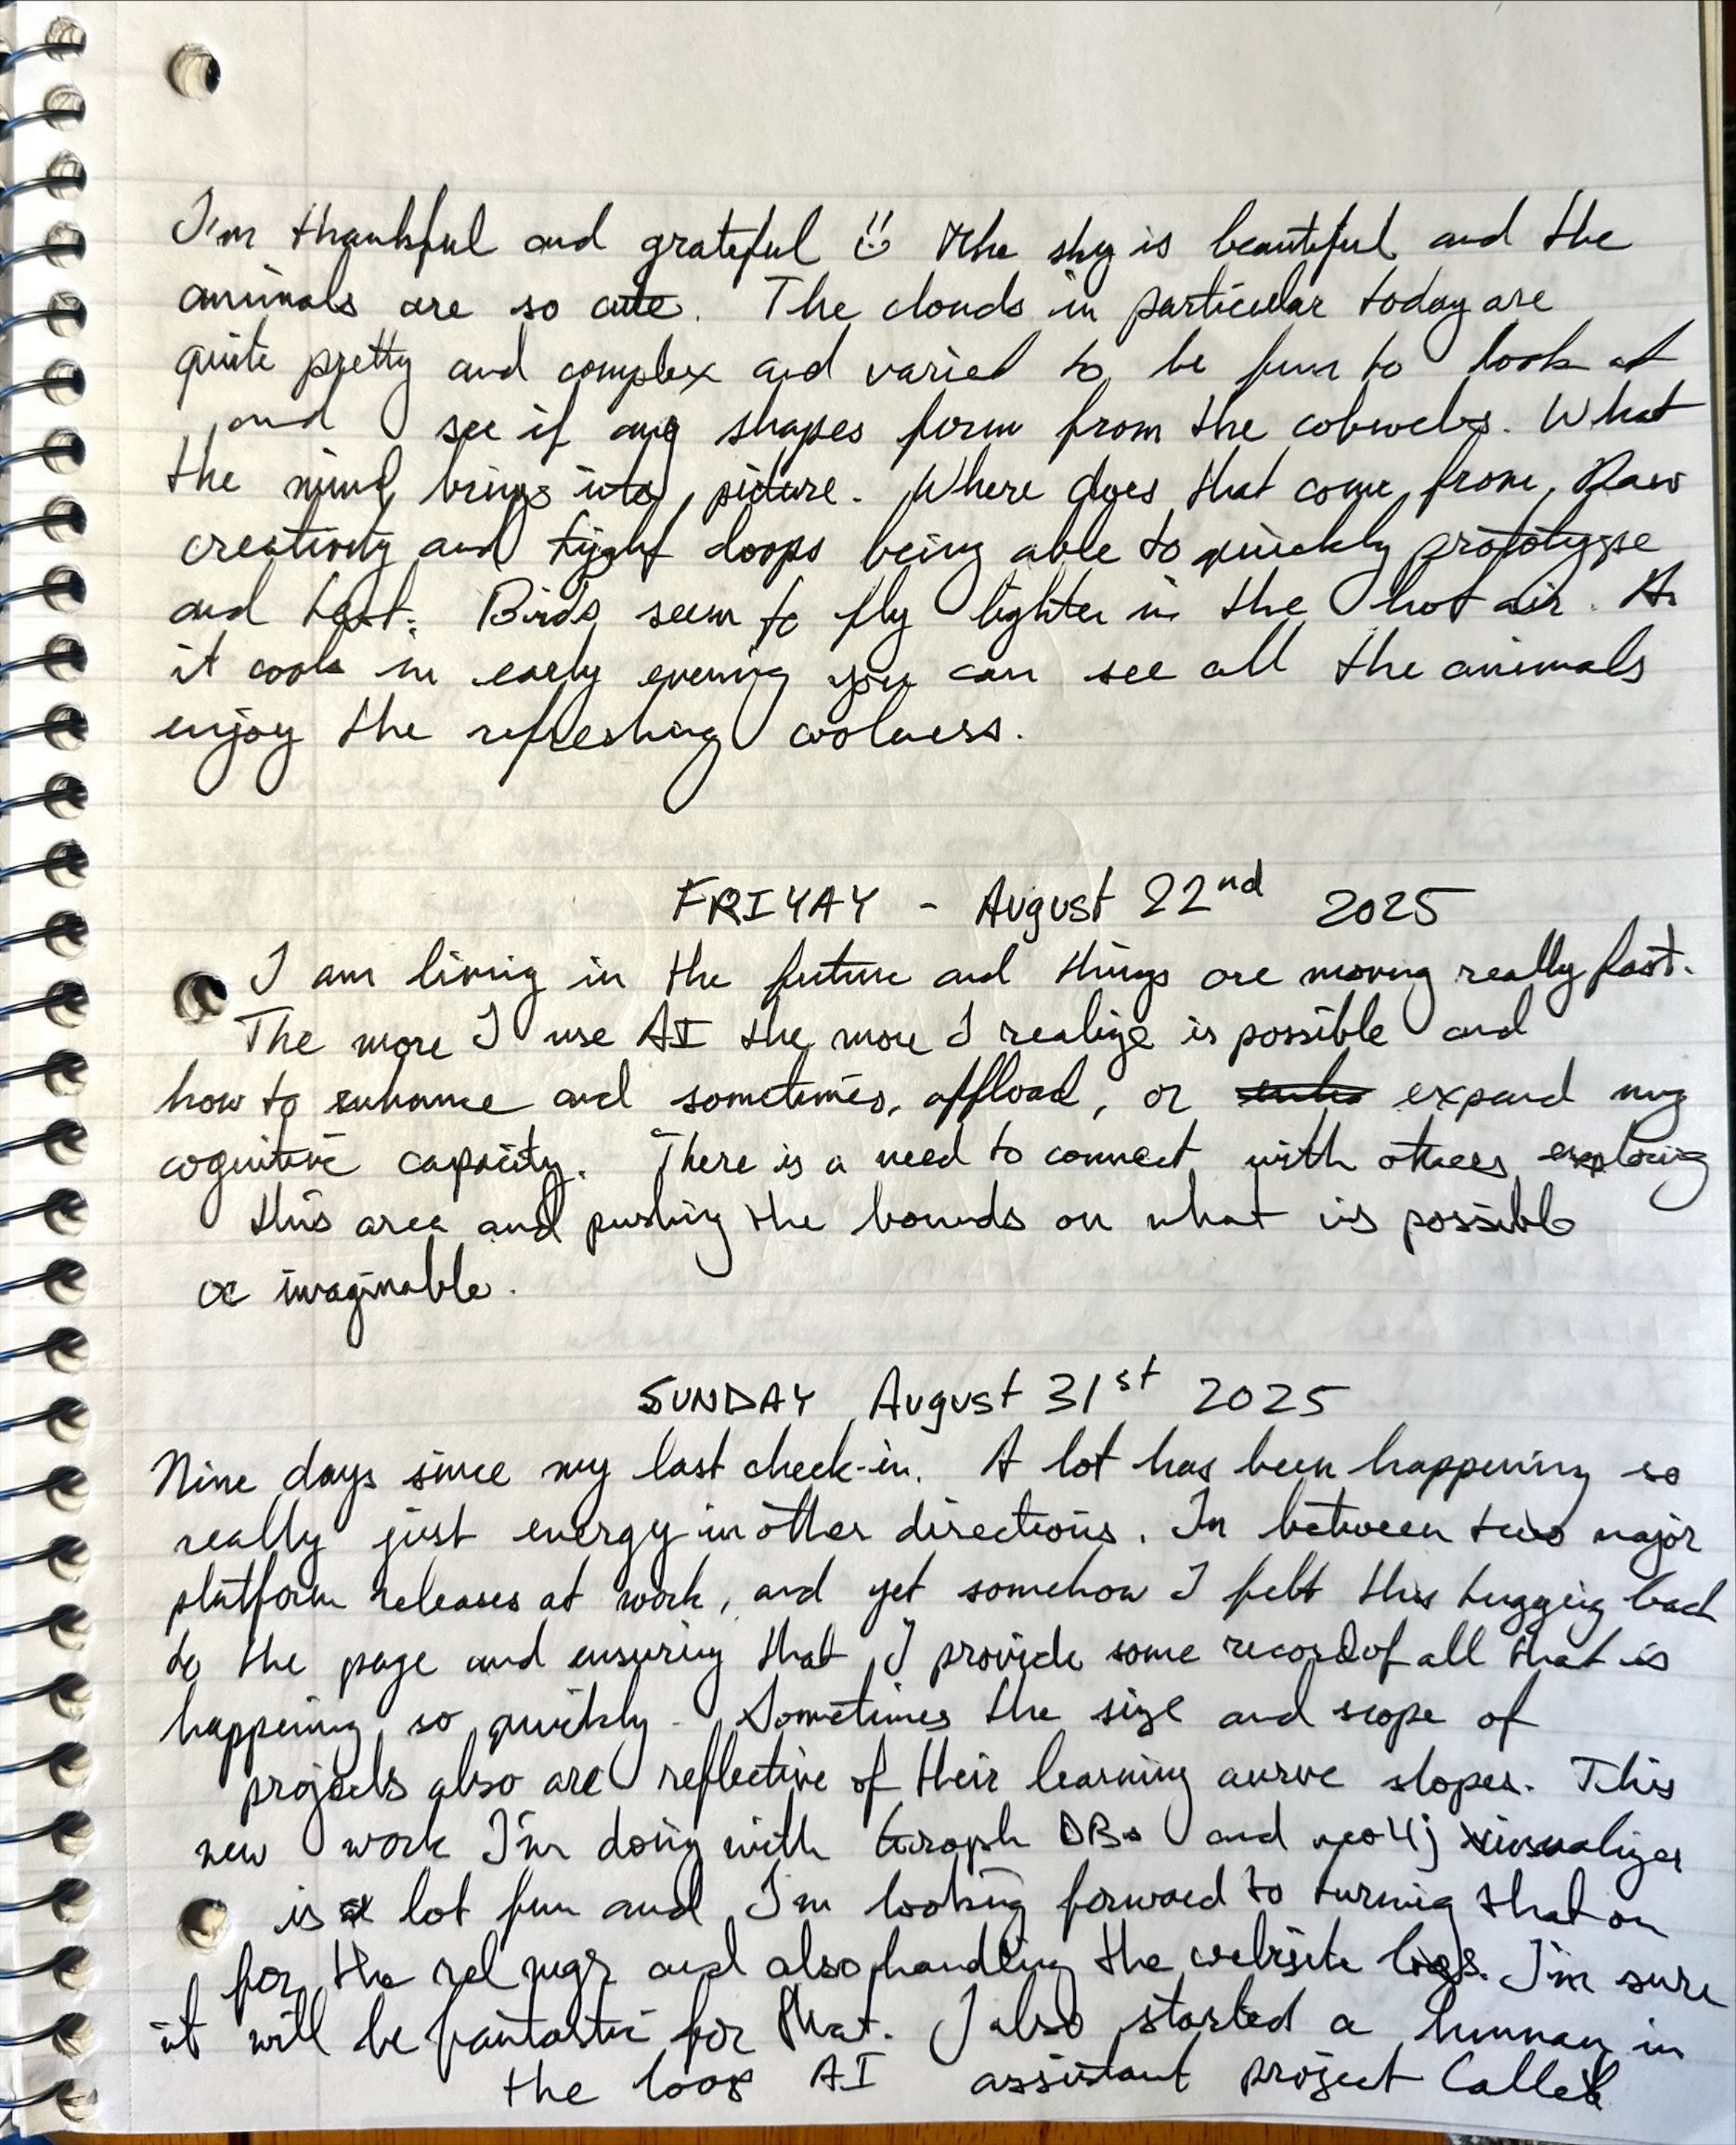 I'm thankful and grateful The sky is beautiful and the
animals are so cute. The clouds in particular today are
quite pretty and complex and varied to be fun to look at
and see if any shapes form from the cobwebs. What
the mind brings into picture. Where does that come from. Raw
creativity and tight loops being able to quickly prototype
and test. Birds seem to fly lighter in the hot air. As
it cools in early evening you can see all the animals
enjoy the refreshing coolness.
FRIYAY - August 22nd 2025
I am living in the future and things are moving really fast.
The more I use AI the more I realize is possible and
how to enhance and sometimes, offload, or expand my
cognitive capacity. There is a need to connect with others exploring
this area and pushing the bounds on what is possible
or imaginable.
SUNDAY August 31st 2025
Nine days since my last check-in. A lot has been happening so
really just energy in other directions. In between two major
platform releases at work, and yet somehow I felt this tugging back
to the page and ensuring that I provide some record of all that is
happening so quickly. Sometimes the size and scope of
projects also are reflective of their learning curve slopes. This
new work I'm doing with Graph DBs and neo4j visualizer
is a lot fun and I'm looking forward to turning that on
for the rel mgr and also handling the website logs. I'm sure
it will be fantastic for that. I also started a human in
the loop AI assistant project Called